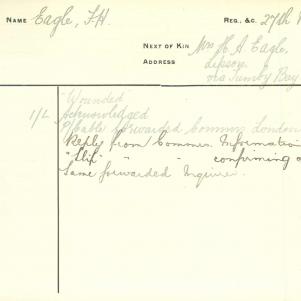 NAME Eagle, F.H. REG., &C. 27th
NEXT OF KIN Mrs H A Eagle,
ADDRESS Lipson,
via Tumby Bay
"Wounded"
1/L Acknowledged
Cable forwarded Commrs. London
Reply from Commrs. Information
" " " confirming
Same forwarded Inquirer.